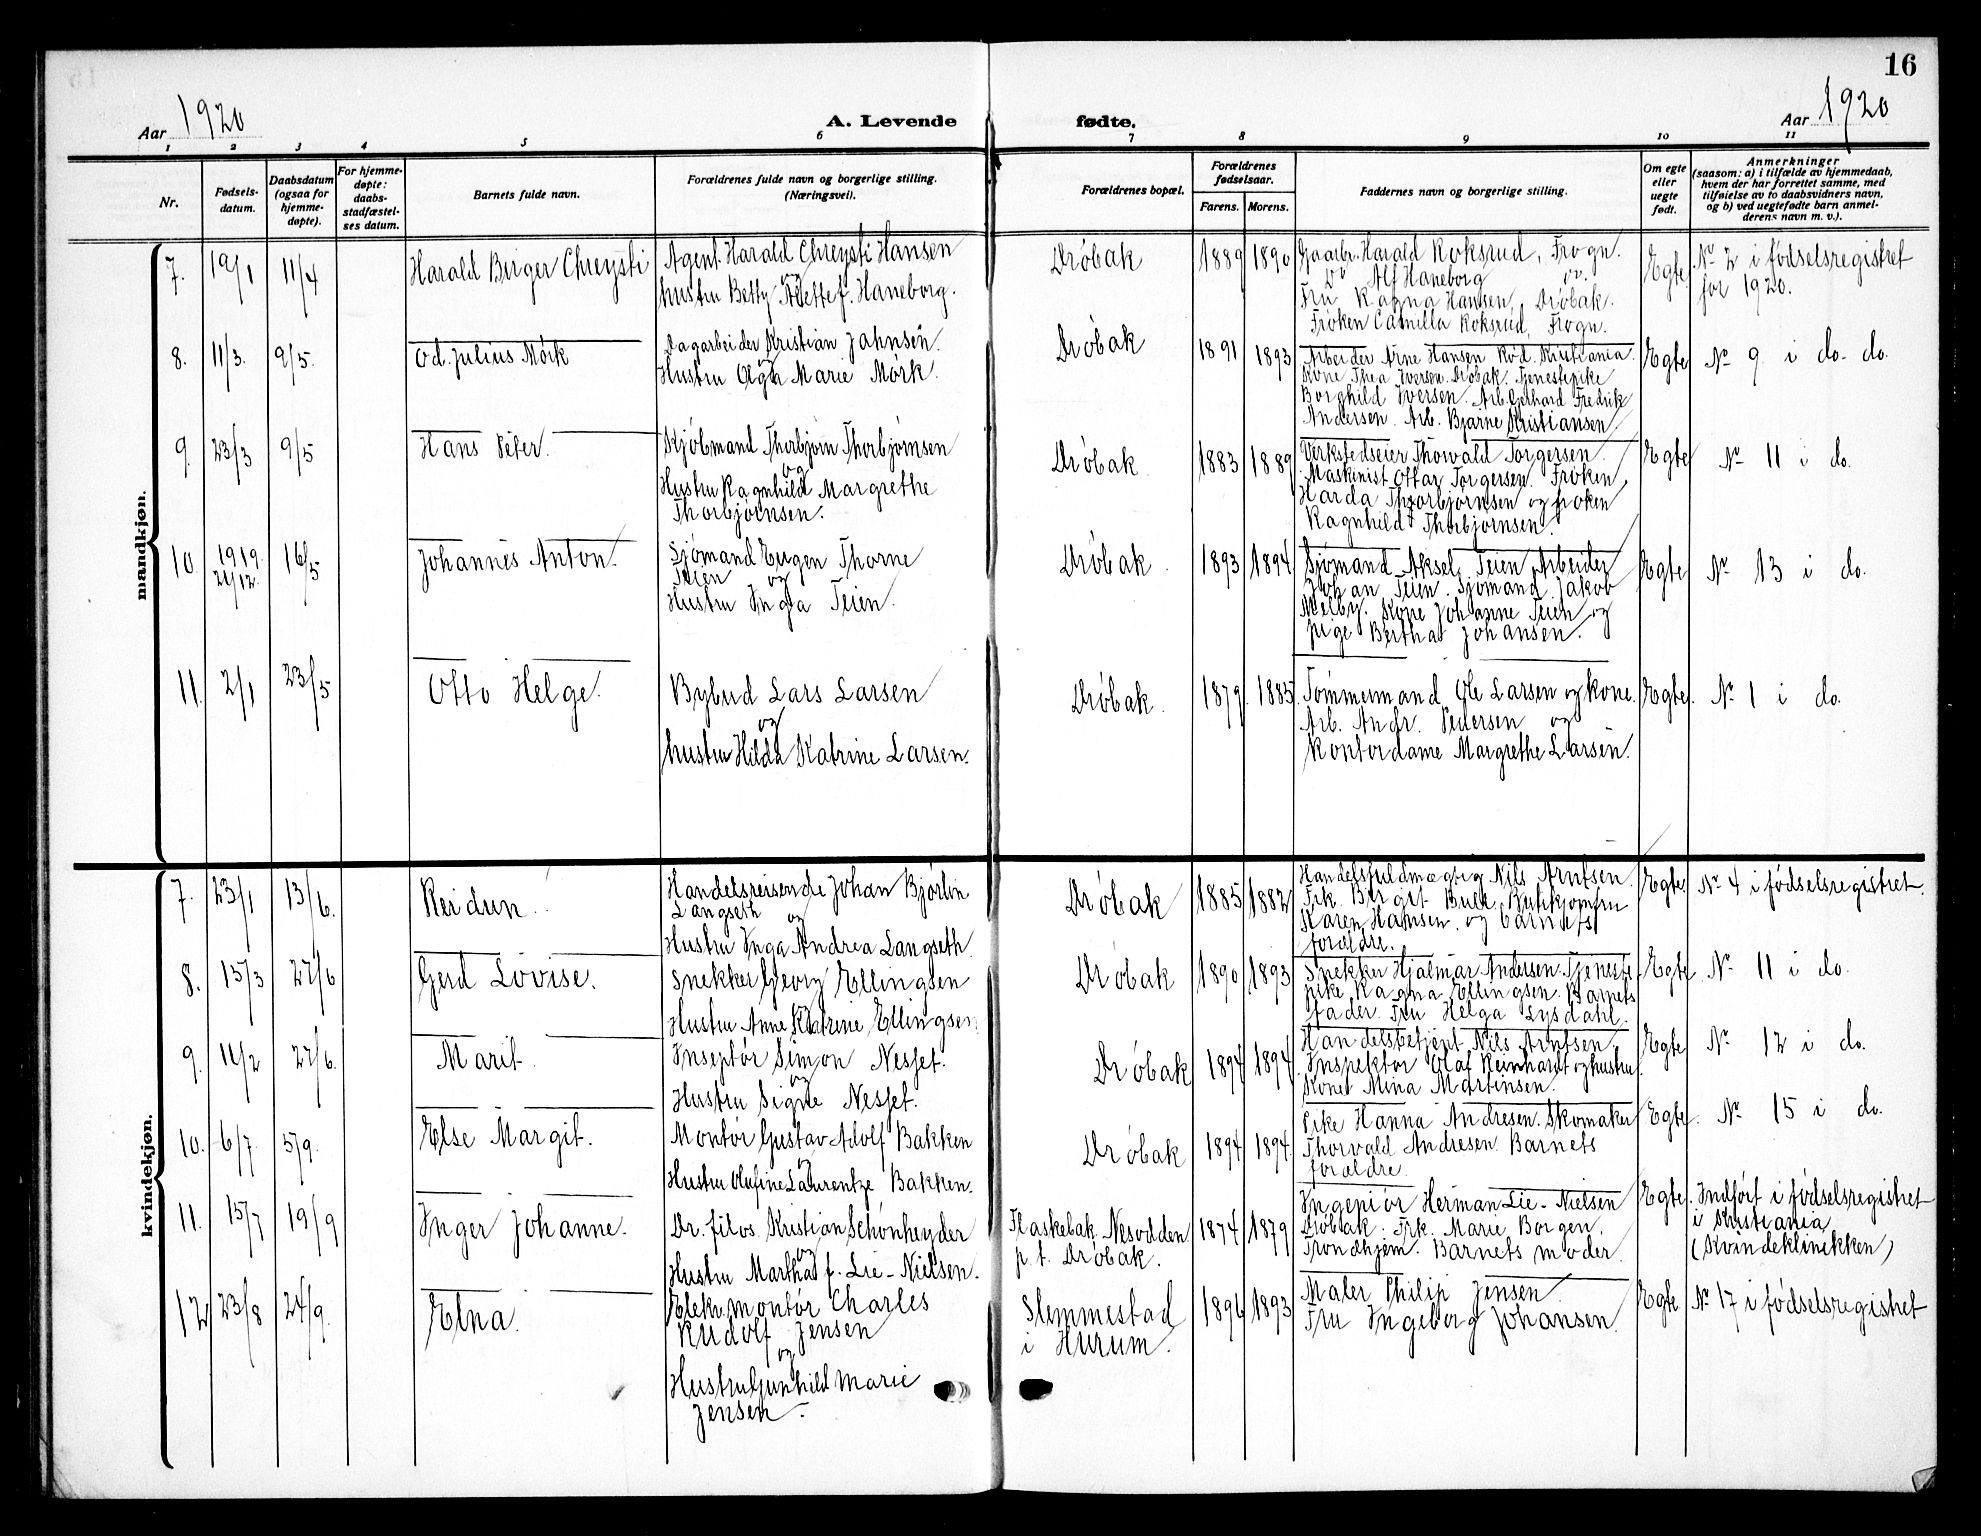 16
Aar 1920
A. Levende fødte.
Aar 1920
1 2 3 4 5 6 7 8 9 10 11
Nr.
Fødsels-
datum.
Daabsdatum
(ogsaa for
hjemme-
døpte).
For hjemme-
døpte:
daabs-
stadfæstel-
ses datum.
Barnets fulde navn.
Forældrenes fulde navn og borgerlige stilling.
(Næringsvei).
Forældrenes bopæl.
Forældrenes
fødselsaar.
Farens. Morens.
Faddernes navn og borgerlige stilling.
Om egte
eller
uegte
født.
Anmerkninger
(saasom: a) i tilfælde av hjemmedaab,
hvem der har forrettet samme, med
tilføielse av to daabsvidners navn,
og b) ved uegtefødte barn anmel-
derens navn m. v.).
mandkjøn.
7. 19/1 11/4
Harald Birger Chreysti
Agent. Harald Chreysti Hansen
og
hustru Betty f. Haneborg.
Drøbak
1889 1890
Gaarbr. Harald Roksrud, Frogn.
Do Alf Haneborg do.
Fru Ragna Hansen, Drøbak.
Frøken Camilla Roksrud, Frogn.
Egte
No 2 i fødselsregistret
for 1920.
8. 11/3. 9/5.
Od. Julius Mörk
Dagarbeider Kristian Jahnsen.
og
Hustru Olga Marie Mörk.
Drøbak
1891 1893
Arbeider Arne Hansen Rød. Kristiania.
Kone Thea Iversen. Drøbak. Tjenestepike
Borghild Iversen. Arb. Gerhard Fredrik
Andersen. Arb. Bjarne Kristiansen.
Egte
No 9 i do. do.
9. 23/3 9/5
Hans Peter.
Kjøbmand Thorbjørn Thorbjørnsen
og
Hustru Ragnhild Margrethe
Thorbjørnsen.
Drøbak.
1883 1889
Verkstedseier Thorvald Torgersen.
Maskinist Ottar Torgersen. Frøken
Harda Thorbjørnsen og frøken
Ragnhild Thorbjørnsen.
Egte
No 11 i do.
10. 1919. 21/12. 16/5
Johannes Anton.
Sjømand Eugen Thorne
Teien og
Hustru Inga Teien.
Drøbak.
1893 1894
Sjømand Aksel Teien Arbeider
Johan Teien. Sjømand Jakob
Melby. Kone Johanne Teien og
pige Bertha Johansen.
Egte
No 13 i do.
11. 2/1 23/5
Otto Helge.
Bybud Lars Larsen
og
hustru Hilda Katrine Larsen.
Drøbak.
1879. 1885
Tømmermand Ole Larsen og kone.
Arb. Andr. Pedersen og
Kontordame Margrethe Larsen.
Egte.
No 1 i do.
kvindekjøn.
7. 23/1 13/6.
Reidun.
Handelsreisende Johan Bjørlin
Langseth og
Hustru Inga Andrea Langseth.
Drøbak
1885 1882
Handelsfuldmægtig Nils Arntsen.
Frk. Birgit Buck. Butikjomfru
Karen Hansen. og barnets
forældre.
Egte.
No 4 i fødselsregistret.
8. 15/3 27/6
Gerd Lovise.
Snekker Georg Ellingsen
Hustru Anne Katrine Ellingsen
Drøbak
1890 1893
Snekker Hjalmar Andersen. Tjeneste-
pike Ragna Ellingsen. Barnets
fader. Fru Helga Lysdahl.
Egte.
No 11 i do.
9. 11/2 27/6.
Marit.
Inseptør Simon Nesset.
og
Hustru Signe Nesset.
Drøbak
1894 1894
Handelsbetjent Nils Arntsen.
Inspektør Olaf Reinhardt og hustru.
Kone Mina Martinsen.
Egte
No 12 i do.
10. 6/7. 5/9.
Else Margit.
Montør Gustav Adolf Bakken
og
Hustru Olufine Laurentze Bakken.
Drøbak
1894 1894.
Pike Hanna Andresen. Skomaker
Thorvald Andresen. Barnets
forældre.
Egte.
No 15 i do.
11. 15/7 19/9
Inger Johanne.
Dr. filos. Kristian Schønheyder
og
Hustru Martha f. Lie-Nielsen.
Flaskebæk. Nesodden
p. t. Drøbak.
1874 1879
Ingeniør Herman Lie-Nielsen
Drøbak. Frk. Marie Borgen.
Trondhjem. Barnets moder.
Egte.
Indført i fødselsregistret
i Kristiania
(Kvindeklinikken)
12 23/8 24/9.
Elna.
Elekr. montør Charles
Rudolf Jensen
og
Hustru Gunhild Marie
Jensen.
Slemmestad
i Hurum.
1896 1893
Maler Philip Jensen.
Fru Ingeborg Johansen.
Egte
No 17 i fødselsregistret